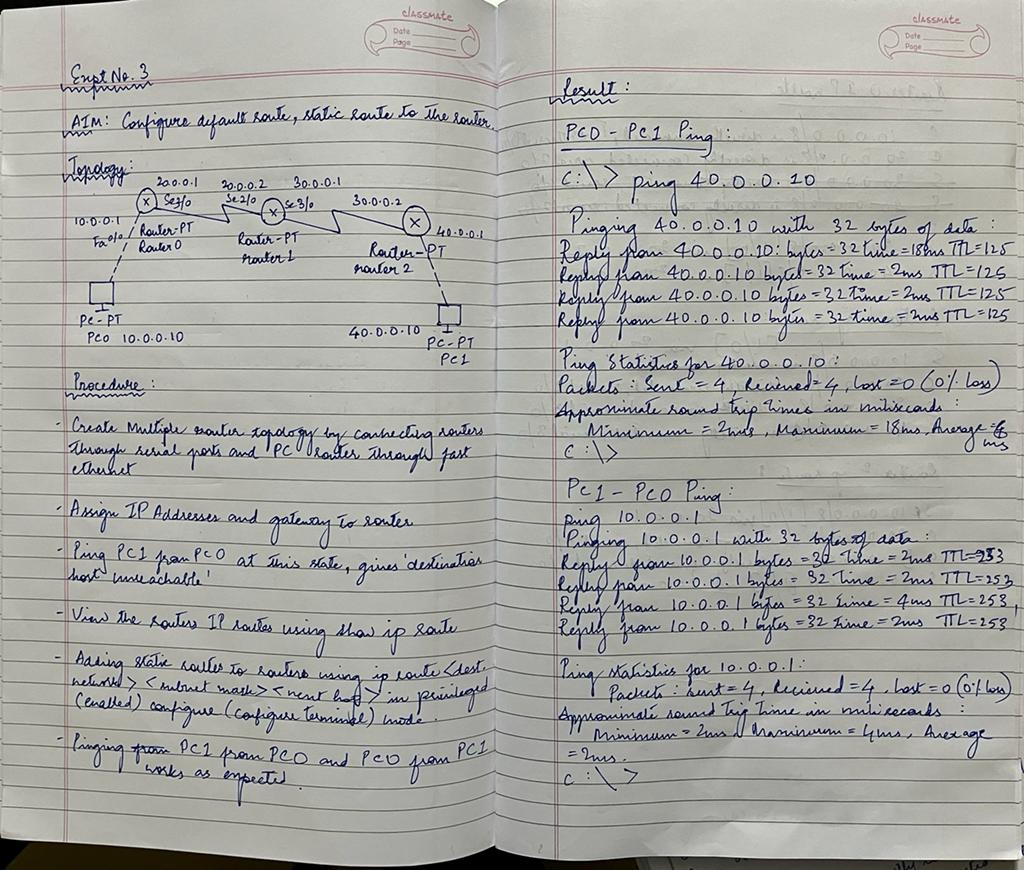 classmate
Date
Page
Expt No. 3
AIM: Configure default route, static route to the router.
Topology:
20.0.0.1 20.0.0.2 30.0.0.1
Se2/0 Se2/0 Se3/0 30.0.0.2
10.0.0.1
Fa0/0 Router-PT
Router 0
Router-PT
router 1
40.0.0.1
Router-PT
router 2
PC-PT
PC0 10.0.0.10
40.0.0.10 PC-PT
PC1
Procedure:
- Create Multiple router topology by connecting routers
through serial ports and PC router through fast
ethernet
- Assign IP Addresses and gateway to router
- Ping PC1 from PC0 at this state, gives 'destination
host unreachable'
- View the routers IP routes using show ip route
- Adding static routes to routers using ip route <dest.
network> <subnet mask> <next hop> in privileged
(enabled) configure (configure terminal) mode.
- Pinging from PC1 from PC0 and PC0 from PC1
works as expected.
classmate
Date
Page
Result:
PC0 - PC1 Ping:
C:\> ping 40.0.0.10
Pinging 40.0.0.10 with 32 bytes of data:
Reply from 40.0.0.10: bytes=32 time=18ms TTL=125
Reply from 40.0.0.10 bytes=32 time=2ms TTL=125
Reply from 40.0.0.10 bytes=32 Time=2ms TTL=125
Reply from 40.0.0.10 bytes=32 time=2ms TTL=125
Ping Statistics for 40.0.0.10:
Packets: Sent=4, Recieved=4, Lost=0 (0% Loss)
Approximate round trip times in miliseconds:
Minimum=2ms, Maximum=18ms, Average=
ms
C:\>
PC1 - PC0 Ping:
ping 10.0.0.1
Pinging 10.0.0.1 with 32 bytes of data:
Reply from 10.0.0.1 bytes=32 Time=2ms TTL=253
Reply from 10.0.0.1 bytes=32 Time=2ms TTL=253
Reply from 10.0.0.1 bytes=32 time=4ms TTL=253,
Reply from 10.0.0.1 bytes=32 time=2ms TTL=253
Ping statistics for 10.0.0.1:
Packets: sent=4, Recieved=4, Lost=0 (0% Loss)
Approximate round Trip Time in miliseconds:
Minimum=2ms, Maximum=4ms, Average
=2ms.
C:\>